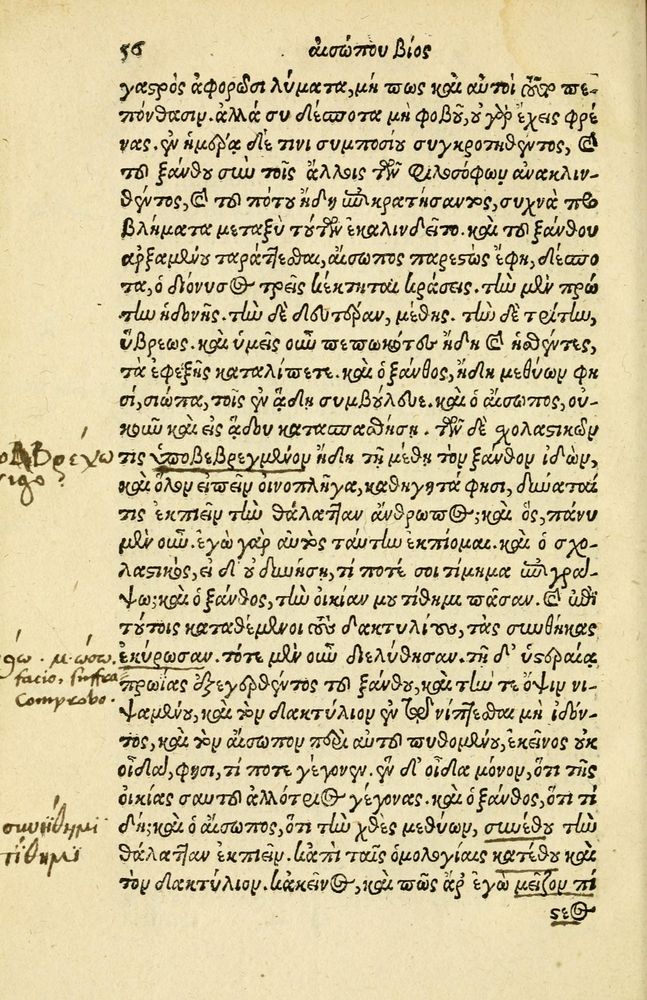 56 αἰσώπου βίος
γαστρὸς ἀφορῶσι λύματα, μή πως καὶ αὐτοὶ τοῦτο πε-
πόνθασιν. ἀλλὰ σὺ δέσποτα μὴ φοβοῦ, οὐ γὰρ ἔχεις φρέ
νας. ἐν ἡμέρᾳ δέ τινι συμποσίου συγκροτηθέντος, καὶ
τοῦ ξάνθου σὺν τοῖς ἄλλοις τῶν φιλοσόφων ἀνακλιν-
θέντος, καὶ τοῦ πότου ἤδη ἐπικρατήσαντος, συχνὰ προ
βλήματα μεταξὺ τούτων ἐκαλινδεῖτο. καὶ τοῦ ξάνθου
ἀρξαμένου ταράττεσθαι, αἴσωπος παρεστὼς ἔφη, δέσπο
τα, ὁ διόνυσος τρεῖς κέκτηται κράσεις. τὴν μὲν πρώ
την ἡδονῆς. τὴν δὲ δευτέραν, μέθης. τὴν δὲ τρίτην,
ὕβρεως. καὶ ὑμεῖς οὖν πεπωκότες ἤδη καὶ ἡσθέντες,
τὰ ἐφεξῆς καταλίπετε. καὶ ὁ ξάνθος, ἤδη μεθύων φη
σί, σιώπα, τοῖς ἐν ᾅδῃ συμβούλευε. καὶ ὁ αἴσωπος, οὐ-
κοῦν καὶ εἰς ᾅδου κατασπασθήσῃ. τῶν δὲ σχολαστικῶν
τις ὑποβεβρεγμένον ἤδη τῇ μέθῃ τὸν ξάνθον ἰδών,
καὶ ὅλον εἰπεῖν οἰνοπλῆγα, καθηγητά φησι, δύναταί
τις ἐκπιεῖν τὴν θάλατταν ἄνθρωπος; καὶ ὅς, πάνυ
μὲν οὖν. ἐγὼ γὰρ αὐτὸς ταύτην ἐκπίομαι. καὶ ὁ σχο-
λαστικός, εἰ δ' οὐ δυνήσῃ, τί ποτέ σοι τίμημα ἐπιγρά-
ψω; καὶ ὁ ξάνθος, τὴν οἰκίαν μου τίθημι πᾶσαν. καὶ ἐπὶ
τούτοις καταθέμενοι τοὺς δακτυλίους, τὰς συνθήκας
ἐκύρωσαν. τότε μὲν οὖν διελύθησαν. τῇ δ' ὑστεραίᾳ
πρωΐας ἐξεγερθέντος τοῦ ξάνθου, καὶ τήν τε ὄψιν νι-
ψαμένου, καὶ τὸν δακτύλιον ἐν τῷ νίπτεσθαι μὴ ἰδόν-
τος, καὶ τὸν αἴσωπον περὶ αὐτοῦ πυθομένου, ἐκεῖνος οὐκ
οἶδα, φησι, τί ποτε γέγονεν. ἓν δ' οἶδα μόνον, ὅτι τῆς
οἰκίας σαυτοῦ ἀλλότριος γέγονας. καὶ ὁ ξάνθος, ὅτι τί
δή; καὶ ὁ αἴσωπος, ὅτι χθὲς μεθύων, συνέθου τὴν
θάλατταν ἐκπιεῖν. κἀπὶ ταῖς ὁμολογίαις κατέθου καὶ
τὸν δακτύλιον. κἀκεῖνος, καὶ πῶς ἂρ ἐγὼ μεῖζον πί
στεως
βρέχω
rigo
facio, suffra
comprobo.
συντίθημι
τίθημι